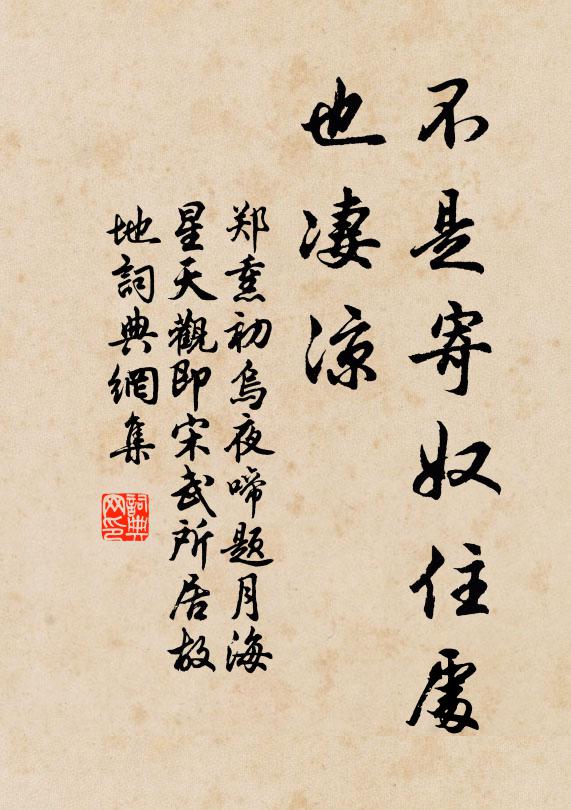 不是寄奴住處
也凄涼
郑熏初烏夜啼題月海
星天觀即宋武所居故
地詞典網集
詞典网印